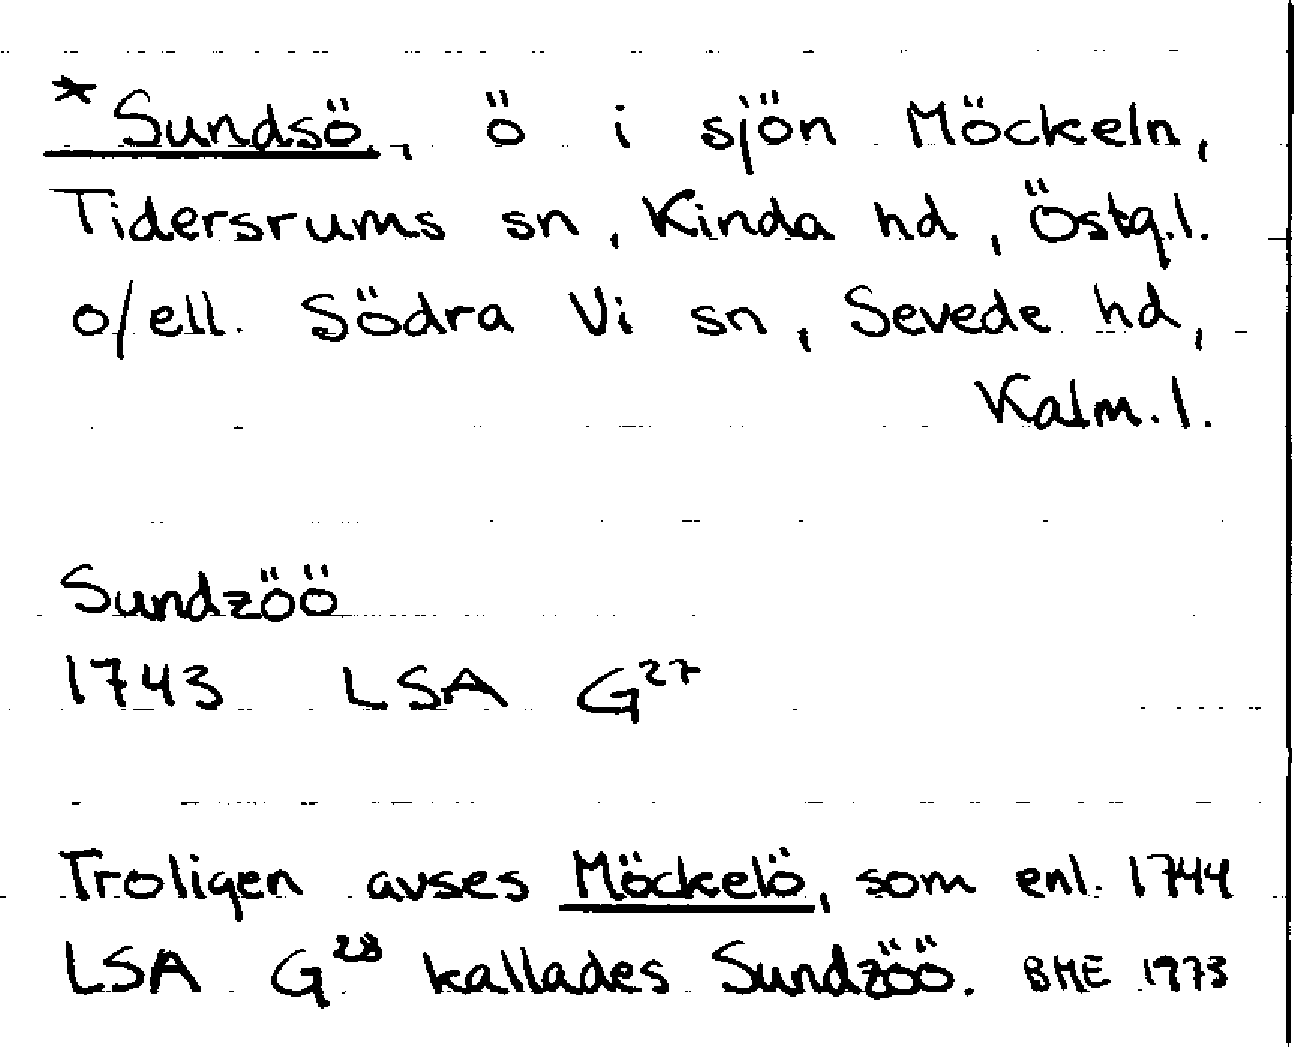 *Sundsö, ö i sjön Möckeln,
Tidersrums sn, Kinda hd, Östg.l.
o/ell. Södra Vi sn, Sevede hd,
Kalm.l.
Sundzöö
1743 LSA G²⁷
Troligen avses Möckelö, som enl. 1744
LSA G²⁸ kallades Sundzöö. BME 1973